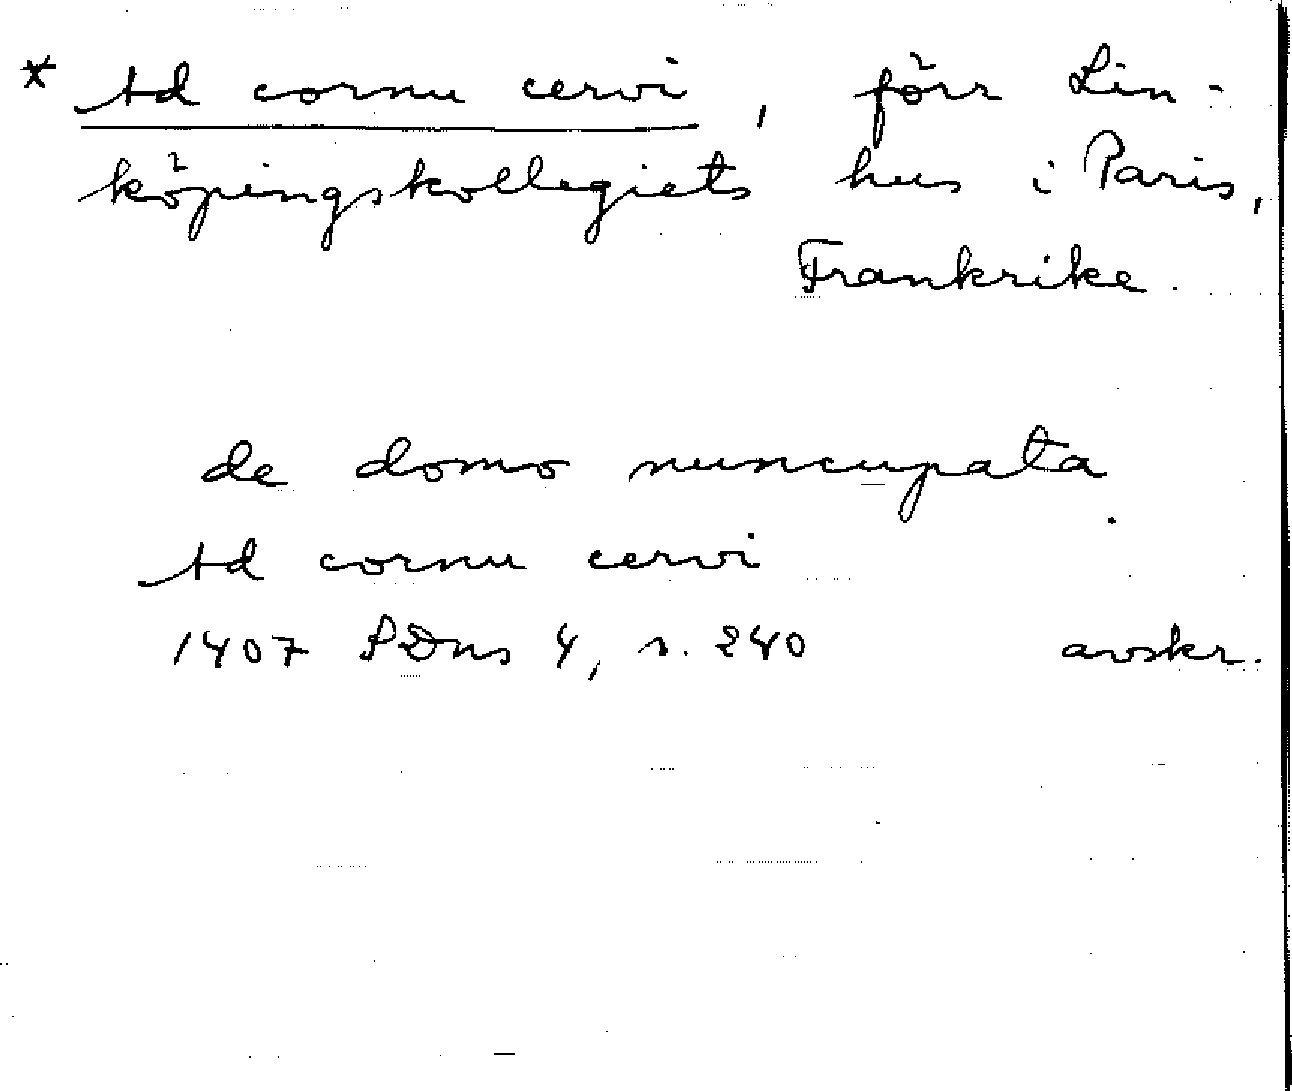 * Ad cornu cervi, förr Lin-
köpingskollegiets hus i Paris,
Frankrike.
de domo nuncupata
Ad cornu cervi
1407 SDns 4, s. 240 avskr.